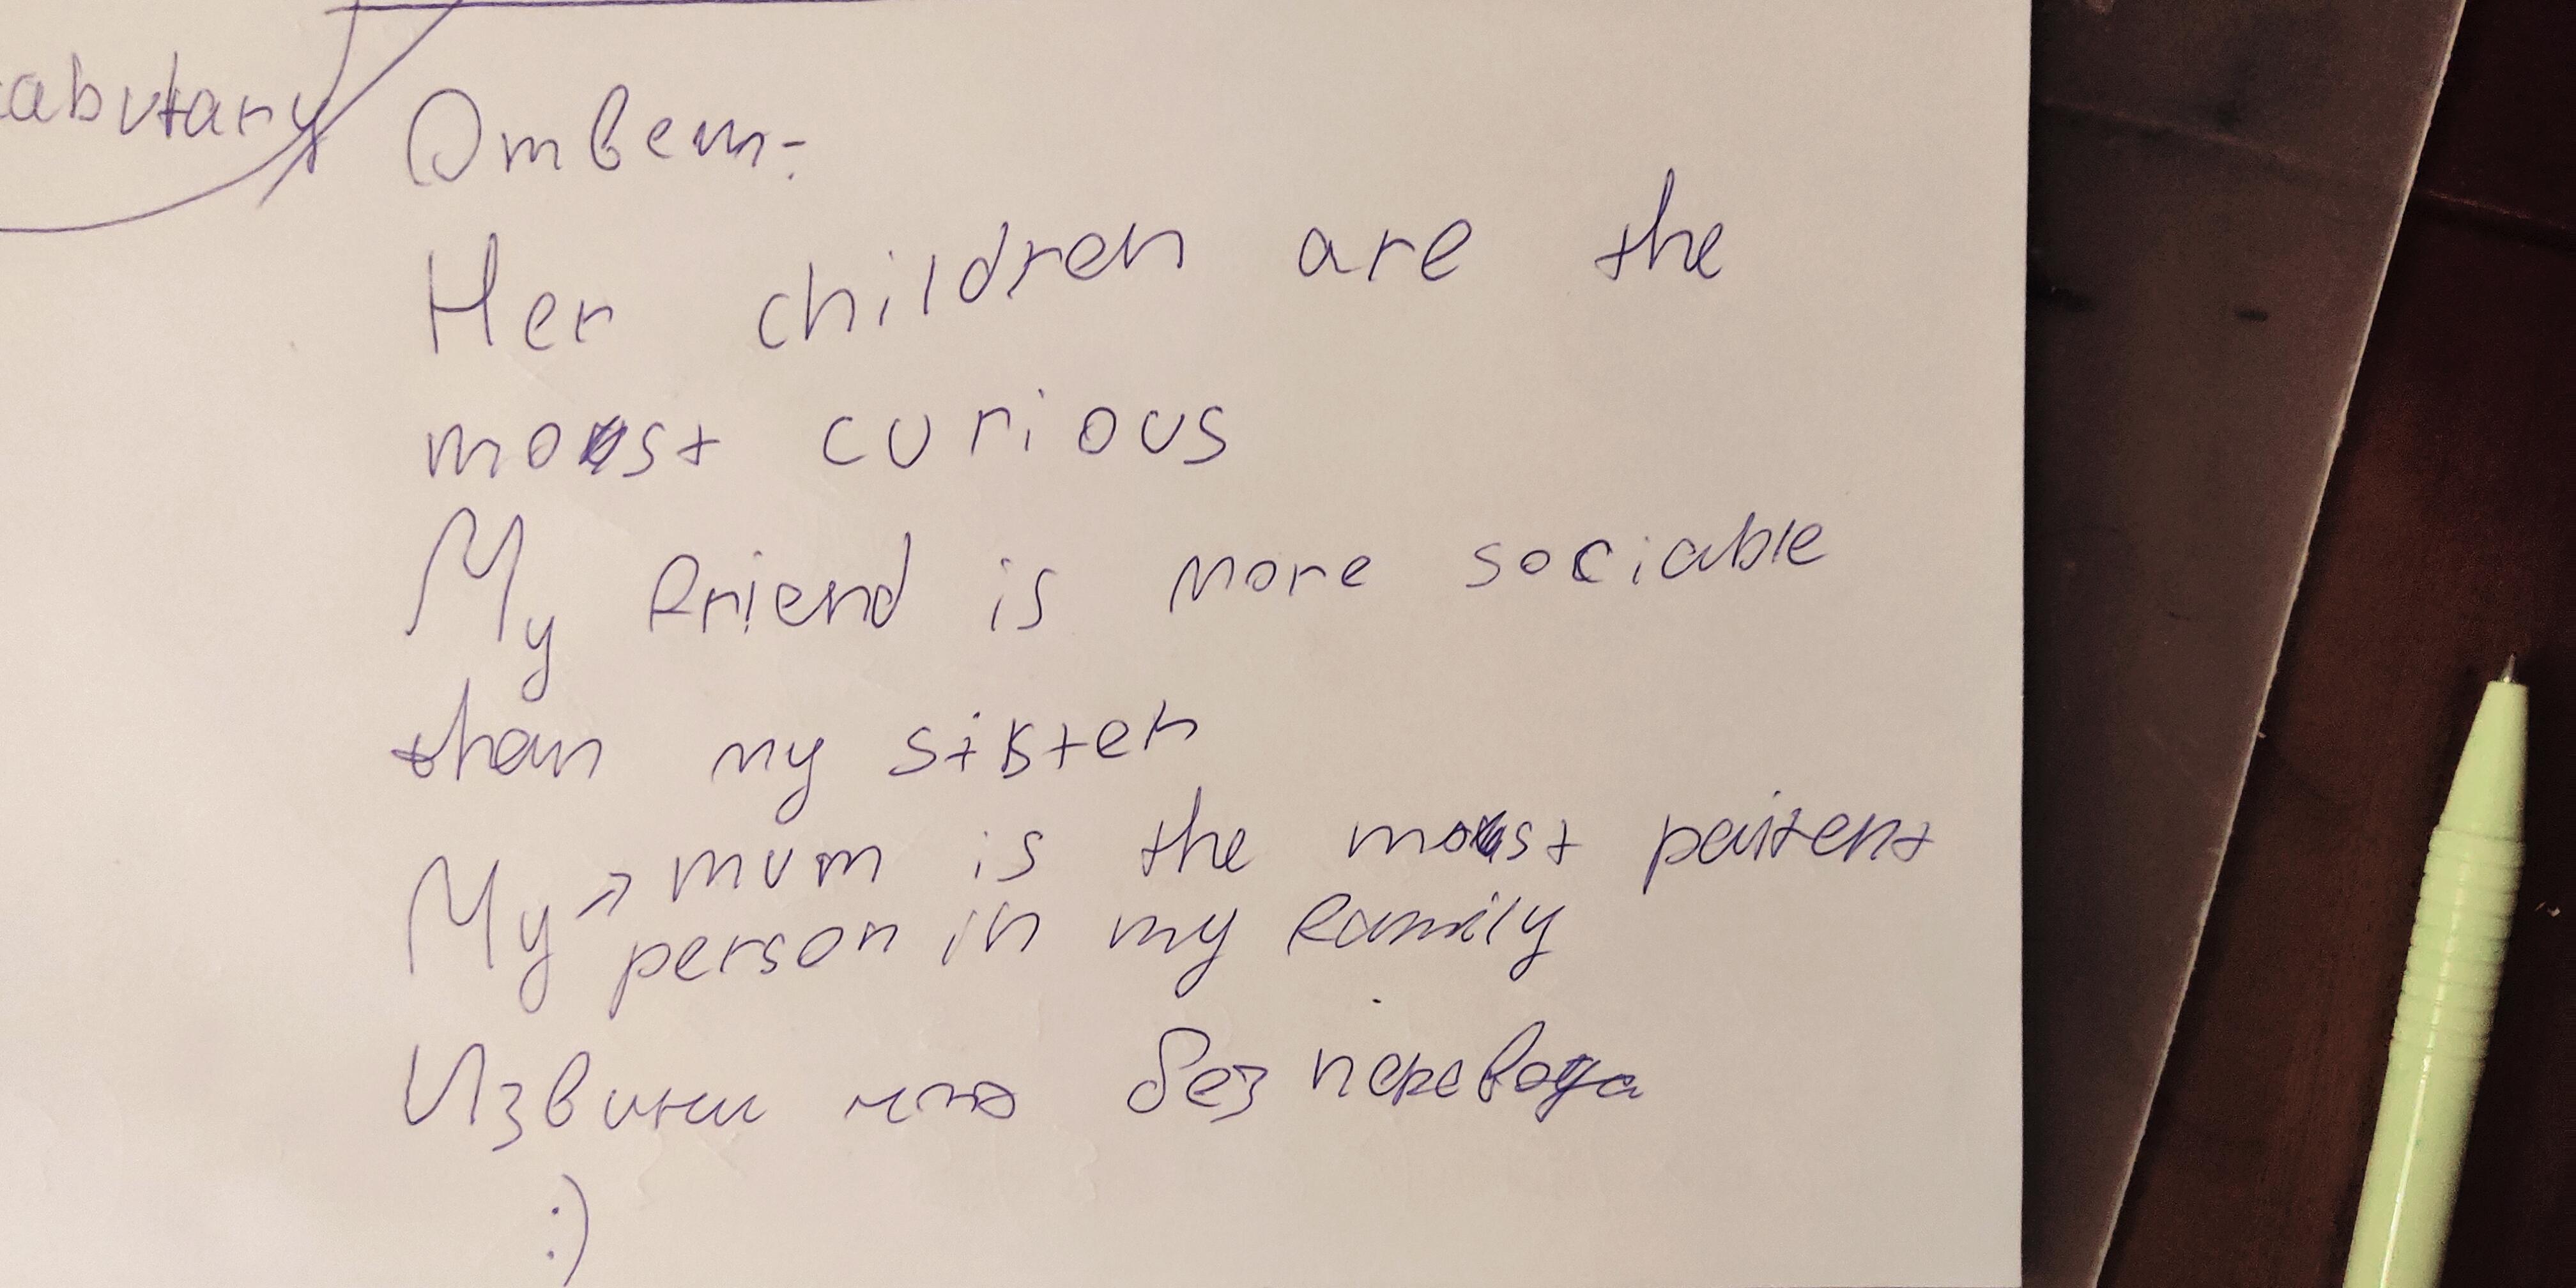 cabulary
Ответ:
Her children are the
most curious
My friend is more sociable
than my sister
My mum is the most paitent
person in my family
Извини что без перевода
:)